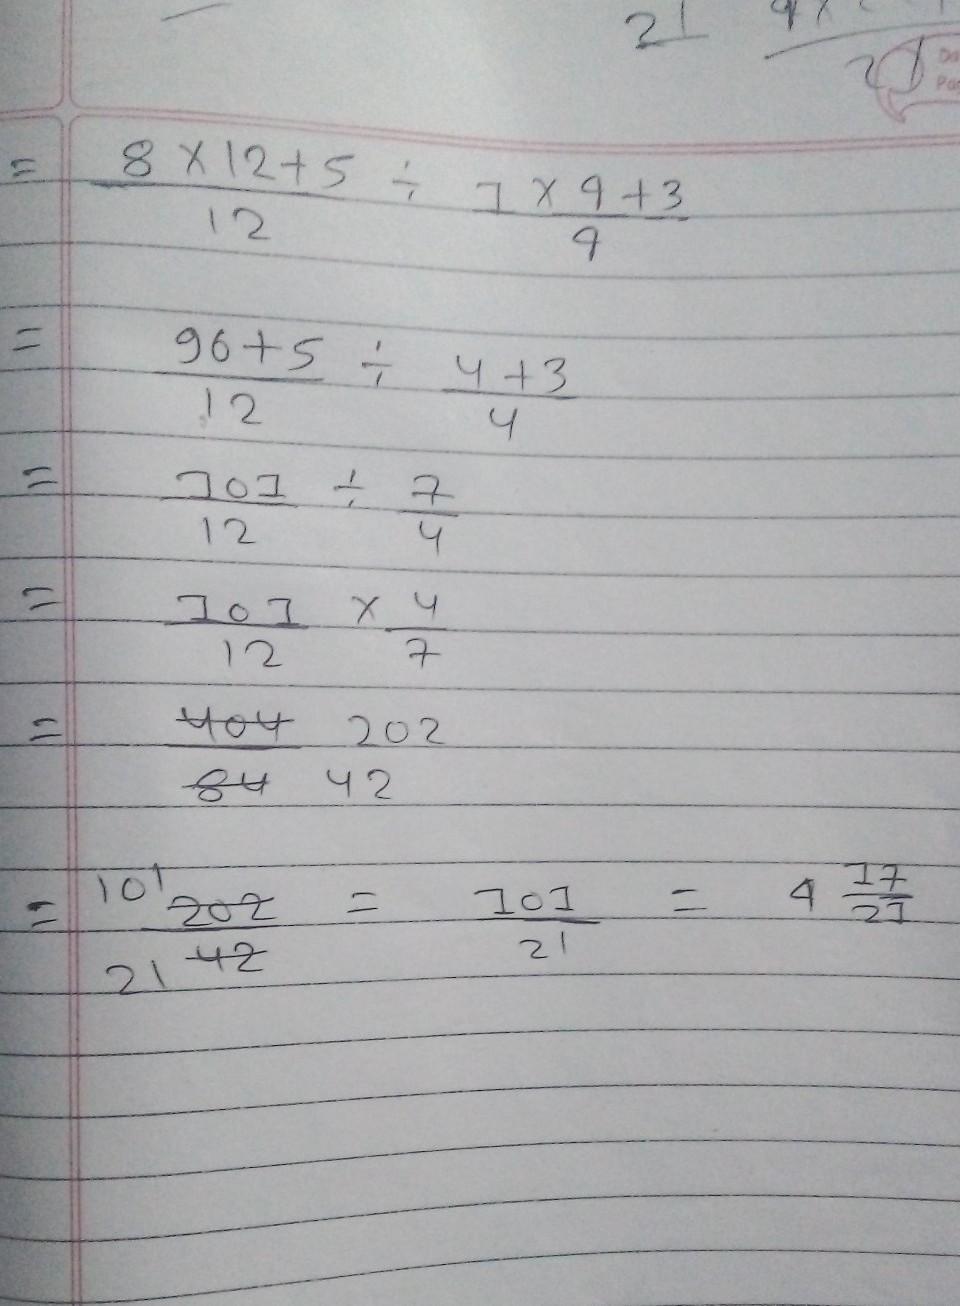 21
21
= 8 × 12 + 5 / 12 ÷ 1 × 4 + 3 / 4
= 96 + 5 / 12 ÷ 4 + 3 / 4
= 101 / 12 ÷ 7 / 4
= 101 / 12 × 4 / 7
= 404 / 84 202 / 42
= 101 202 / 21 42 = 101 / 21 = 4 17/21